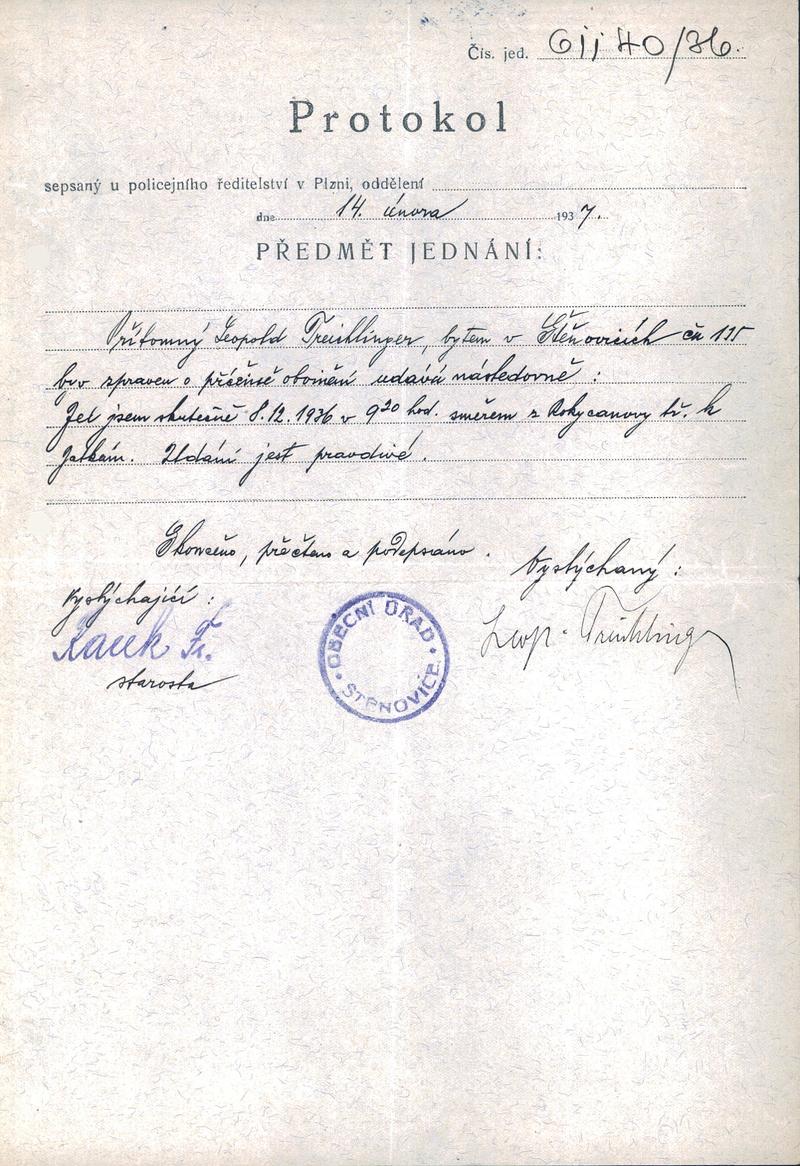 Čís. jed. 6ii40/36.
Protokol
sepsaný u policejního ředitelství v Plzni, oddělení
dne 14. února 1937.
PŘEDMĚT JEDNÁNÍ:
Přítomný Leopold Treichlinger, bytem v Štěnovicích čís 135
byv zpraven o příčině obvinění udává následovně :
Jel jsem skutečně 8.12.1936 v 9 20 hod. směrem z Rokycanovy tř. k
Jatkám. Udání jest pravdivé.
Skončeno, přečteno a podepsáno.
Vyslýchaný :
Vyslýchající :
Fr.
Leop. Treichlinger
starosta
OBECNÍ ÚŘAD
ŠTĚNOVICE